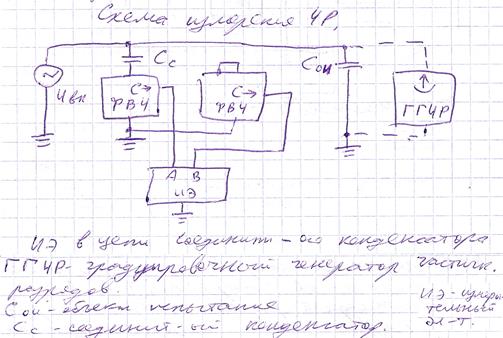 Схема измерения ЧР.
Cc
Cои
Uвн
C→
РВЧ
C→
РВЧ
ГГЧР
A B
ИЭ
ИЭ в цепи соединит-ого конденсатора
ГГЧР- градуировочный генератор частичн.
разрядов.
Cои - объект испытания
Cc - соединит-ый конденсатор.
ИЭ-измери
тельный
эл-т.